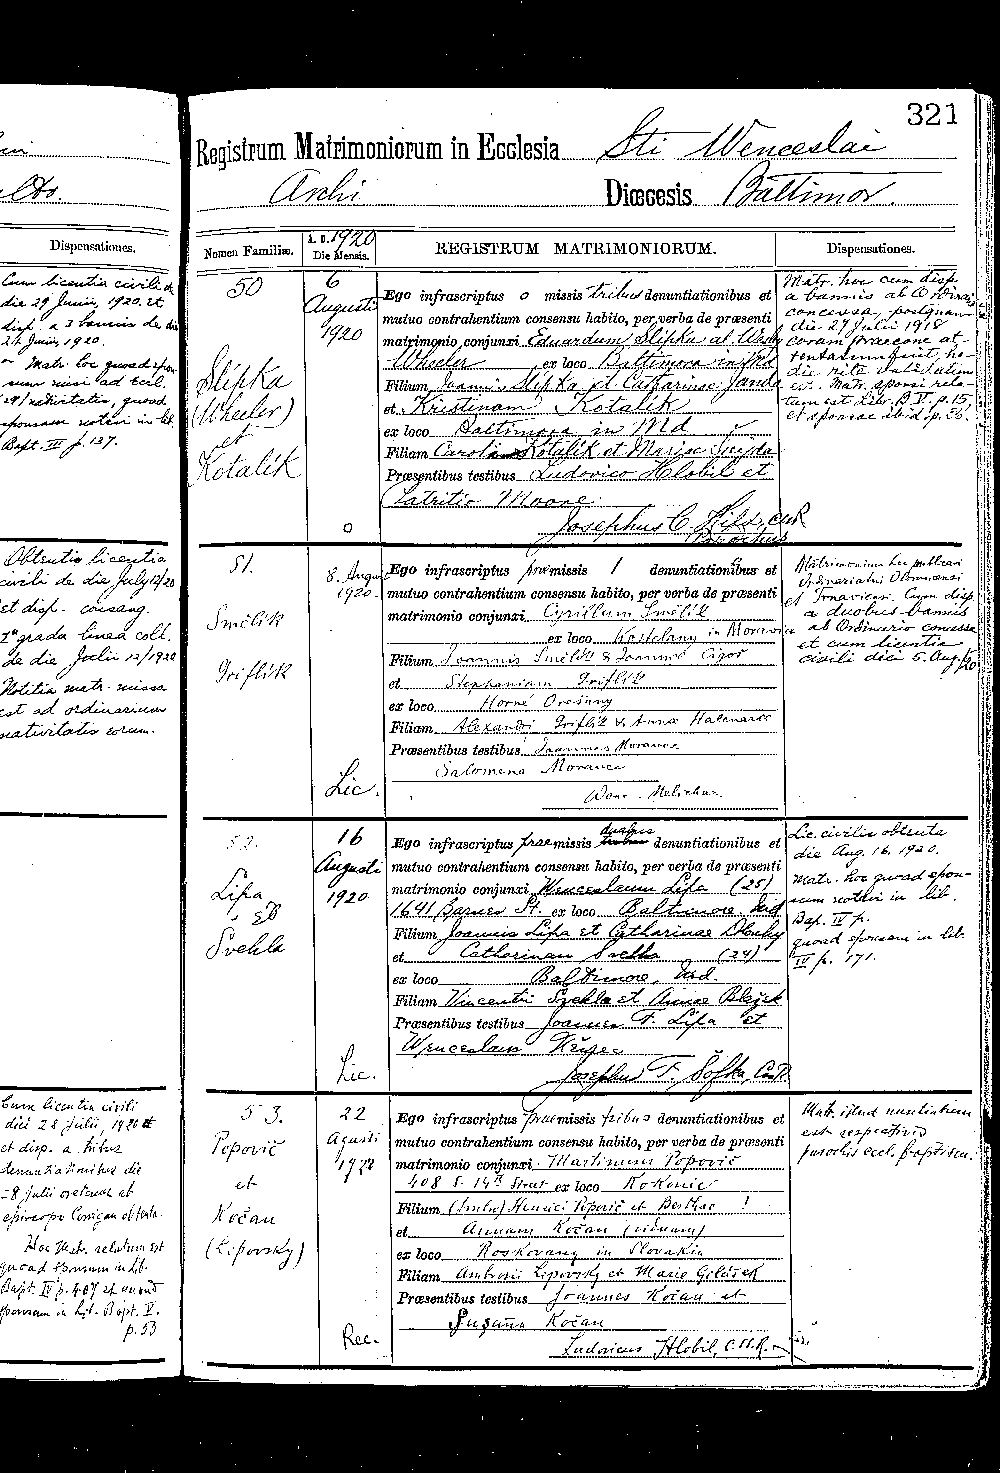 321
Registrum Matrimoniorum in Ecclesia Sti Wenceslai
Archi Diœcesis Baltimor.
Dispensationes.
Nomen Familiæ.
A. D. 1920
Die Mensis.
REGISTRUM MATRIMONIORUM.
Dispensationes.
Cum licentia civili de
die 29 Junii, 1920. et
disp. a 3 bannis de die
24 Junii 1920.
Matr. hoc quoad spon-
sum
nativitatis, quoad
sponsam notavi in lib.
Bapt. III p. 137.
50
Slipka
(Wheeler)
et
Kotalik
6
Augusti
1920
o
Ego infrascriptus o missis tribus denuntiationibus et
mutuo contrahentium consensu habito, per verba de præsenti
matrimonio conjunxi Eduardum Slipka al. Wesly
Wheeler ex loco Baltimora in Md
Filium Joannis Slipka et Catharinae Janda
et Kristinam Kotalik
ex loco Baltimora in Md
Filiam Caroli Kotalik et Mariae
Præsentibus testibus Ludovico Hlobil et
Patritio Moore
Josephus C. CssR
Parochus
Matr. hoc cum disp.
a bannis ab Ordinario
concessa, postquam
die 27 Julii 1918
coram praecone at-
tentatum fuit, ho-
die rite validatum
est. Matr. sponsi rela-
tum est Lib. B. V. p. 15,
et sponsae ibid p. 26.
Obtentis licentia
civili de die July 12/20
et disp. consang.
1° gradu linea coll.
de die Julii 12/1920
Notitia matr. missa
est ad ordinarium
nativitatis eorum.
51.
Smělik
Griflík
8. August
1920.
Lic.
Ego infrascriptus præmissis 1 denuntiationibus et
mutuo contrahentium consensu habito, per verba de præsenti
matrimonio conjunxi Cyrillum Smělik
ex loco Kostelany in Moravia
Filium Joannis Smělik & Joannae Cigoš
et Stephaniam Griflík
ex loco Horné Orešany
Filiam Alexandri Griflík & Annae
Præsentibus testibus Joannes Moravec
Salomena Moravec
Wenc. Melichar
Matrimonium hoc
Ordinariatui Olomucensi
et Trnaviensi. Cum disp.
a duobus bannis
ab Ordinario concessa
et cum licentia
civili diei 5. Aug. 1920
52.
Lipa
et
Svehla
16
Augusti
1920
Lic.
Ego infrascriptus præmissis duabus denuntiationibus et
mutuo contrahentium consensu habito, per verba de præsenti
matrimonio conjunxi Wenceslaum Lipa (25)
1641 Barnes St. ex loco Baltimore Md
Filium Joannis Lipa et Catharinae Dlouhy
et Catharinam Svehla (24)
ex loco Baltimore, Md.
Filiam Vincentii Svehla et Annae Blažek
Præsentibus testibus Joannes F. Lipa et
Wenceslaus
Josephus F. Šofka, CssR.
Lic. civilis obtenta
die Aug. 16. 1920.
Matr. hoc quoad spon-
sum notavi in lib.
Bap. IV p.
quoad sponsam in lib.
IV p. 171.
Cum licentia civili
diei 28 Julii, 1920 et
et disp. a tribus
denuntiationibus die
28 Julii
episcopo Corrigan obtenta.
Hoc Matr. relatum est
quoad sponsum in lib.
Bapt. IV p. 407 et quoad
sponsam in Lib. Bapt. V.
p. 53
53.
Popovič
et
Kočan
(Lipovsky)
22
Agusti
Rec.
Ego infrascriptus præmissis tribus denuntiationibus et
mutuo contrahentium consensu habito, per verba de præsenti
matrimonio conjunxi Martinum Popovič
408 S. 14th Street ex loco Kokonic
Filium Henrici Popovič et Berthae !
et Annam Kočan (viduam)
ex loco Roskovany in Slovakia
Filiam Ambrosii Lipovsky et Marie
Præsentibus testibus Joannes Kočan et
Susana Kočan
Ludovicus Hlobil, C.SS.R.
Matr. istud nuntiatum
est respectivis
parochis eccl. baptism.